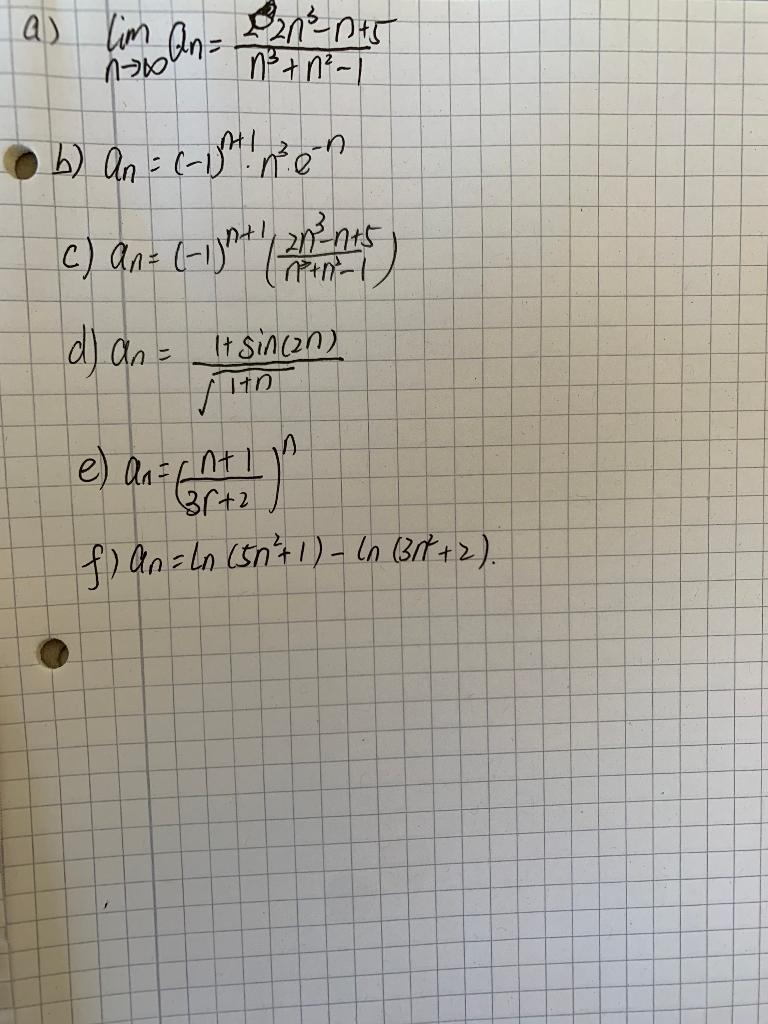 a) lim n→∞ an = (2n³-n+5)/(n³+n²-1)
b) an = (-1)ⁿ⁺¹ · n² · e⁻ⁿ
c) an = (-1)ⁿ⁺¹ ((2n³-n+5)/(n³+n²-1))
d) an = (1+sin(2n))/√(1+n)
e) an = ((n+1)/(3n+2))ⁿ
f) an = ln (5n²+1) - ln (3n²+2).